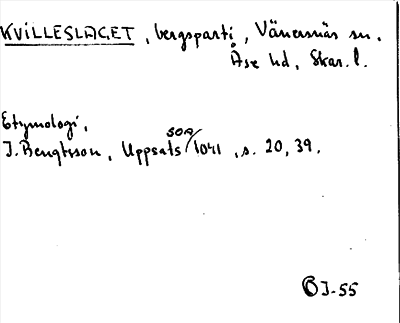 KVILLESLAGET, bergsparti, Vänersnäs sn.
Åse hd, Skar. l.
Etymologi,
J. Bengtsson, Uppsats SOA/1041, s. 20, 39.
BJ-55